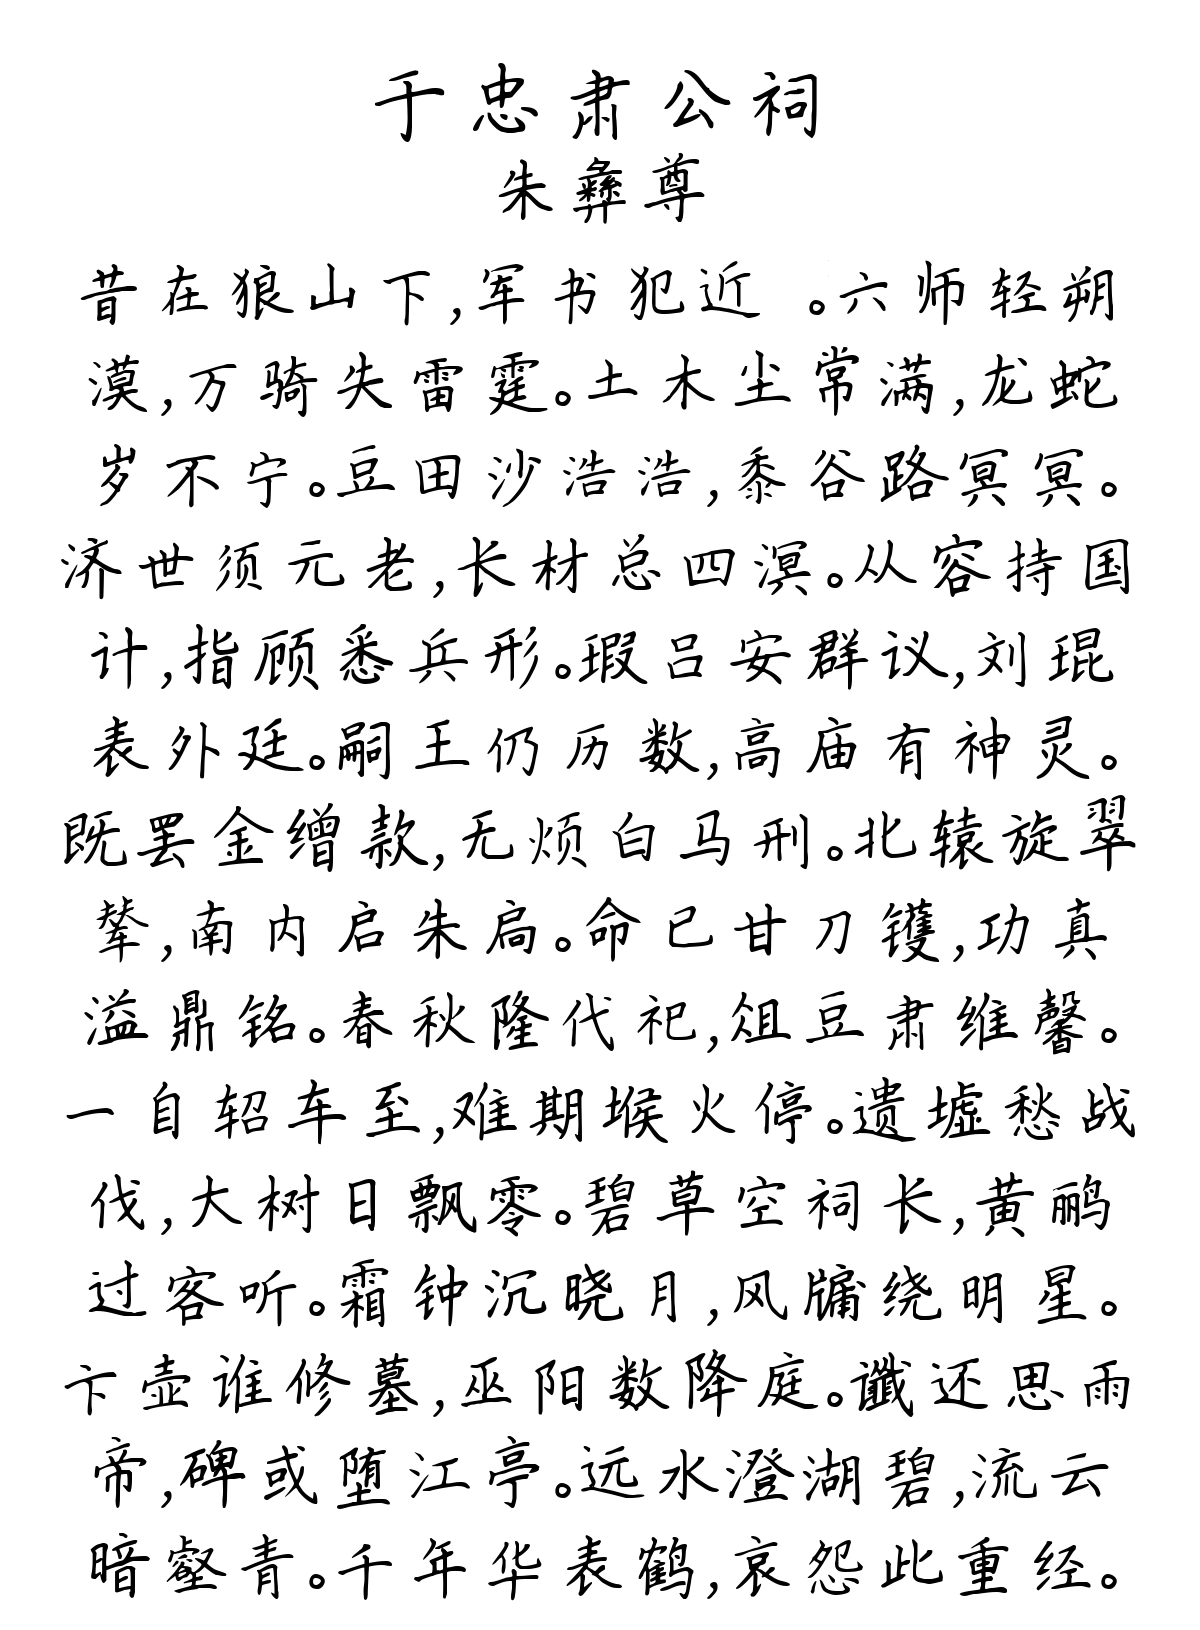 于忠肃公祠
朱彝尊
昔在狼山下,军书犯近 。六师轻朔
漠,万骑失雷霆。土木尘常满,龙蛇
岁不宁。豆田沙浩浩,黍谷路冥冥。
济世须元老,长材总四溟。从容持国
计,指顾悉兵形。瑕吕安群议,刘琨
表外廷。嗣王仍历数,高庙有神灵。
既罢金缯款,无烦白马刑。北辕旋翠
辇,南内启朱扃。命已甘刀镬,功真
溢鼎铭。春秋隆代祀,俎豆肃维馨。
一自轺车至,难期堠火停。遗墟愁战
伐,大树日飘零。碧草空祠长,黄鹂
过客听。霜钟沉晓月,风牖绕明星。
卞壶谁修墓,巫阳数降庭。谶还思雨
帝,碑或堕江亭。远水澄湖碧,流云
暗壑青。千年华表鹤,哀怨此重经。